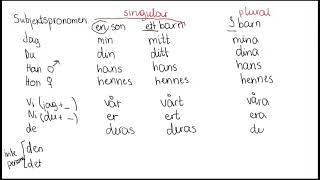 singular plural
Subjektspronomen en son ett barn 3 barn
Jag min mitt mina
Du din ditt dina
Han ♂ hans hans hans
Hon ♀ hennes hennes hennes
Vi (jag + _) vår vårt våra
Ni (du + _) er ert era
de deras deras de
inte person [den
[det